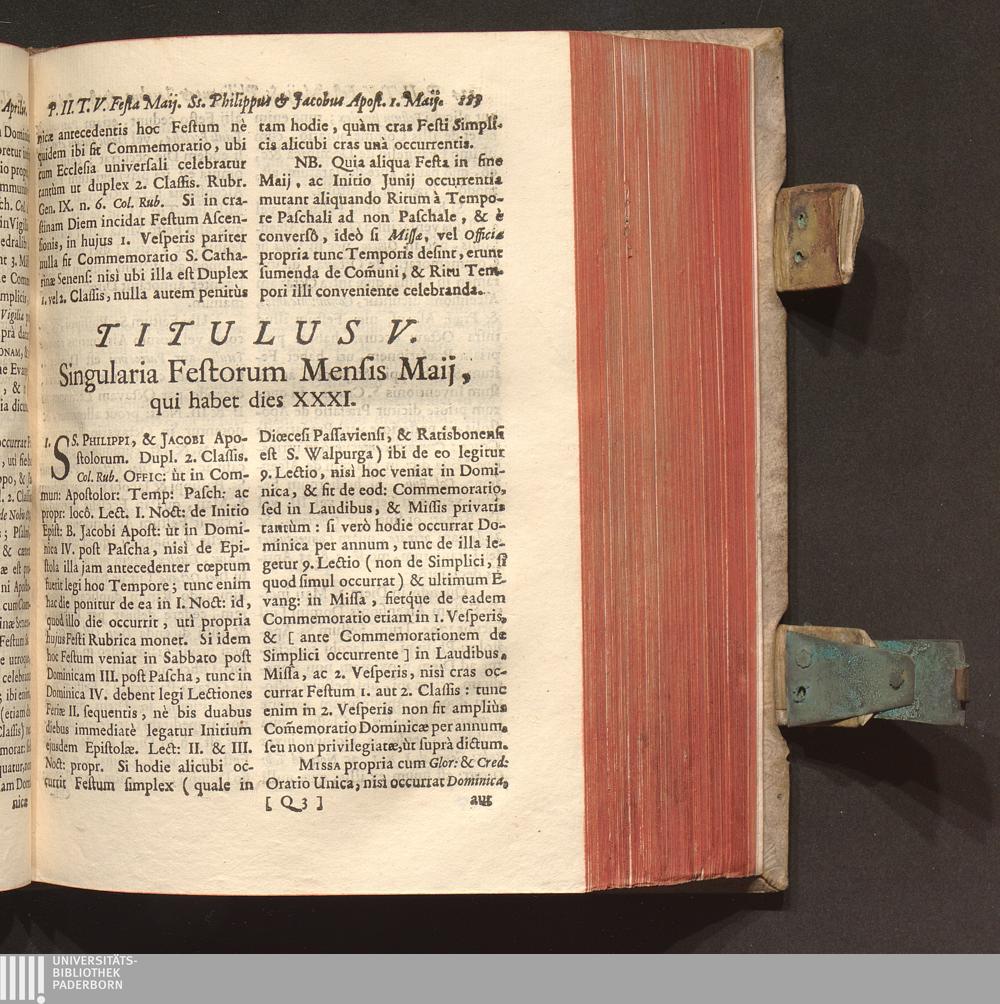 P. II. T. V. Feſta Maij. Ss. Philippus & Jacobus Apoſt. 1. Maij.
nicæ antecedentis hoc Feſtum nè
quidem ibi fit Commemoratio, ubi
cum Eccleſia univerſali celebratur
tantùm ut duplex 2. Claſſis. Rubr.
Gen. IX. n. 6. Col. Rub. Si in cra-
ſtinam Diem incidat Feſtum Aſcen-
ſionis, in hujus 1. Veſperis pariter
nulla fit Commemoratio S. Catha-
rinæ Senenſ: nisì ubi illa eſt Duplex
1. vel 2. Claſſis, nulla autem penitùs
tam hodie, quàm cras Feſti Simpli-
cis alicubi cras unà occurrentis.
NB. Quia aliqua Feſta in fine
Maij, ac Initio Junij occurrentia
mutant aliquando Ritum à Tempo-
re Paſchali ad non Paſchale, & è
converſô, ideò ſi Miſſæ, vel Officia
propria tunc Temporis deſint, erunt
ſumenda de Com̃uni, & Ritu Tem-
pori illi conveniente celebranda.
TITULUS V.
Singularia Feſtorum Menſis Maij,
qui habet dies XXXI.
1. SS. PHILIPPI, & JACOBI Apo-
ſtolorum. Dupl. 2. Claſſis.
Col. Rub. OFFIC: ùt in Com-
mun: Apoſtolor: Temp: Paſch: ac
propr: locô. Lect. I. Noct: de Initio
Epiſt: B. Jacobi Apoſt: ùt in Domi-
nica IV. poſt Paſcha, nisì de Epi-
ſtola illa jam antecedenter cœptum
fuerit legi hoc Tempore; tunc enim
hac die ponitur de ea in I. Noct: id,
quod illo die occurrit, utì propria
hujus Feſti Rubrica monet. Si idem
hoc Feſtum veniat in Sabbato poſt
Dominicam III. poſt Paſcha, tunc in
Dominica IV. debent legi Lectiones
Feriæ II. ſequentis, nè bis duabus
diebus immediatè legatur Initium
ejusdem Epiſtolæ. Lect: II. & III.
Noct: propr. Si hodie alicubi oc-
currit Feſtum ſimplex (quale in
Diœceſi Paſſavienſi, & Ratisbonenſi
eſt S. Walpurga) ibi de eo legitur
9. Lectio, nisì hoc veniat in Domi-
nica, & fit de eod: Commemoratio,
ſed in Laudibus, & Miſſis privatis
tantùm: ſi verò hodie occurrat Do-
minica per annum, tunc de illa le-
getur 9. Lectio (non de Simplici, ſi
quod ſimul occurrat) & ultimum E-
vang: in Miſſa, fietque de eadem
Commemoratio etiam in 1. Veſperis,
& [ante Commemorationem de
Simplici occurrente] in Laudibus,
Miſſa, ac 2. Veſperis, nisì cras oc-
currat Feſtum 1. aut 2. Claſſis: tunc
enim in 2. Veſperis non fit ampliùs
Com̃emoratio Dominicæ per annum,
ſeu non privilegiatæ, ùt ſuprà dictum.
MISSA propria cum Glor: & Cred:
Oratio Unica, nisì occurrat Dominica,
[Q3] aut
UNIVERSITÄTS-
BIBLIOTHEK
PADERBORN